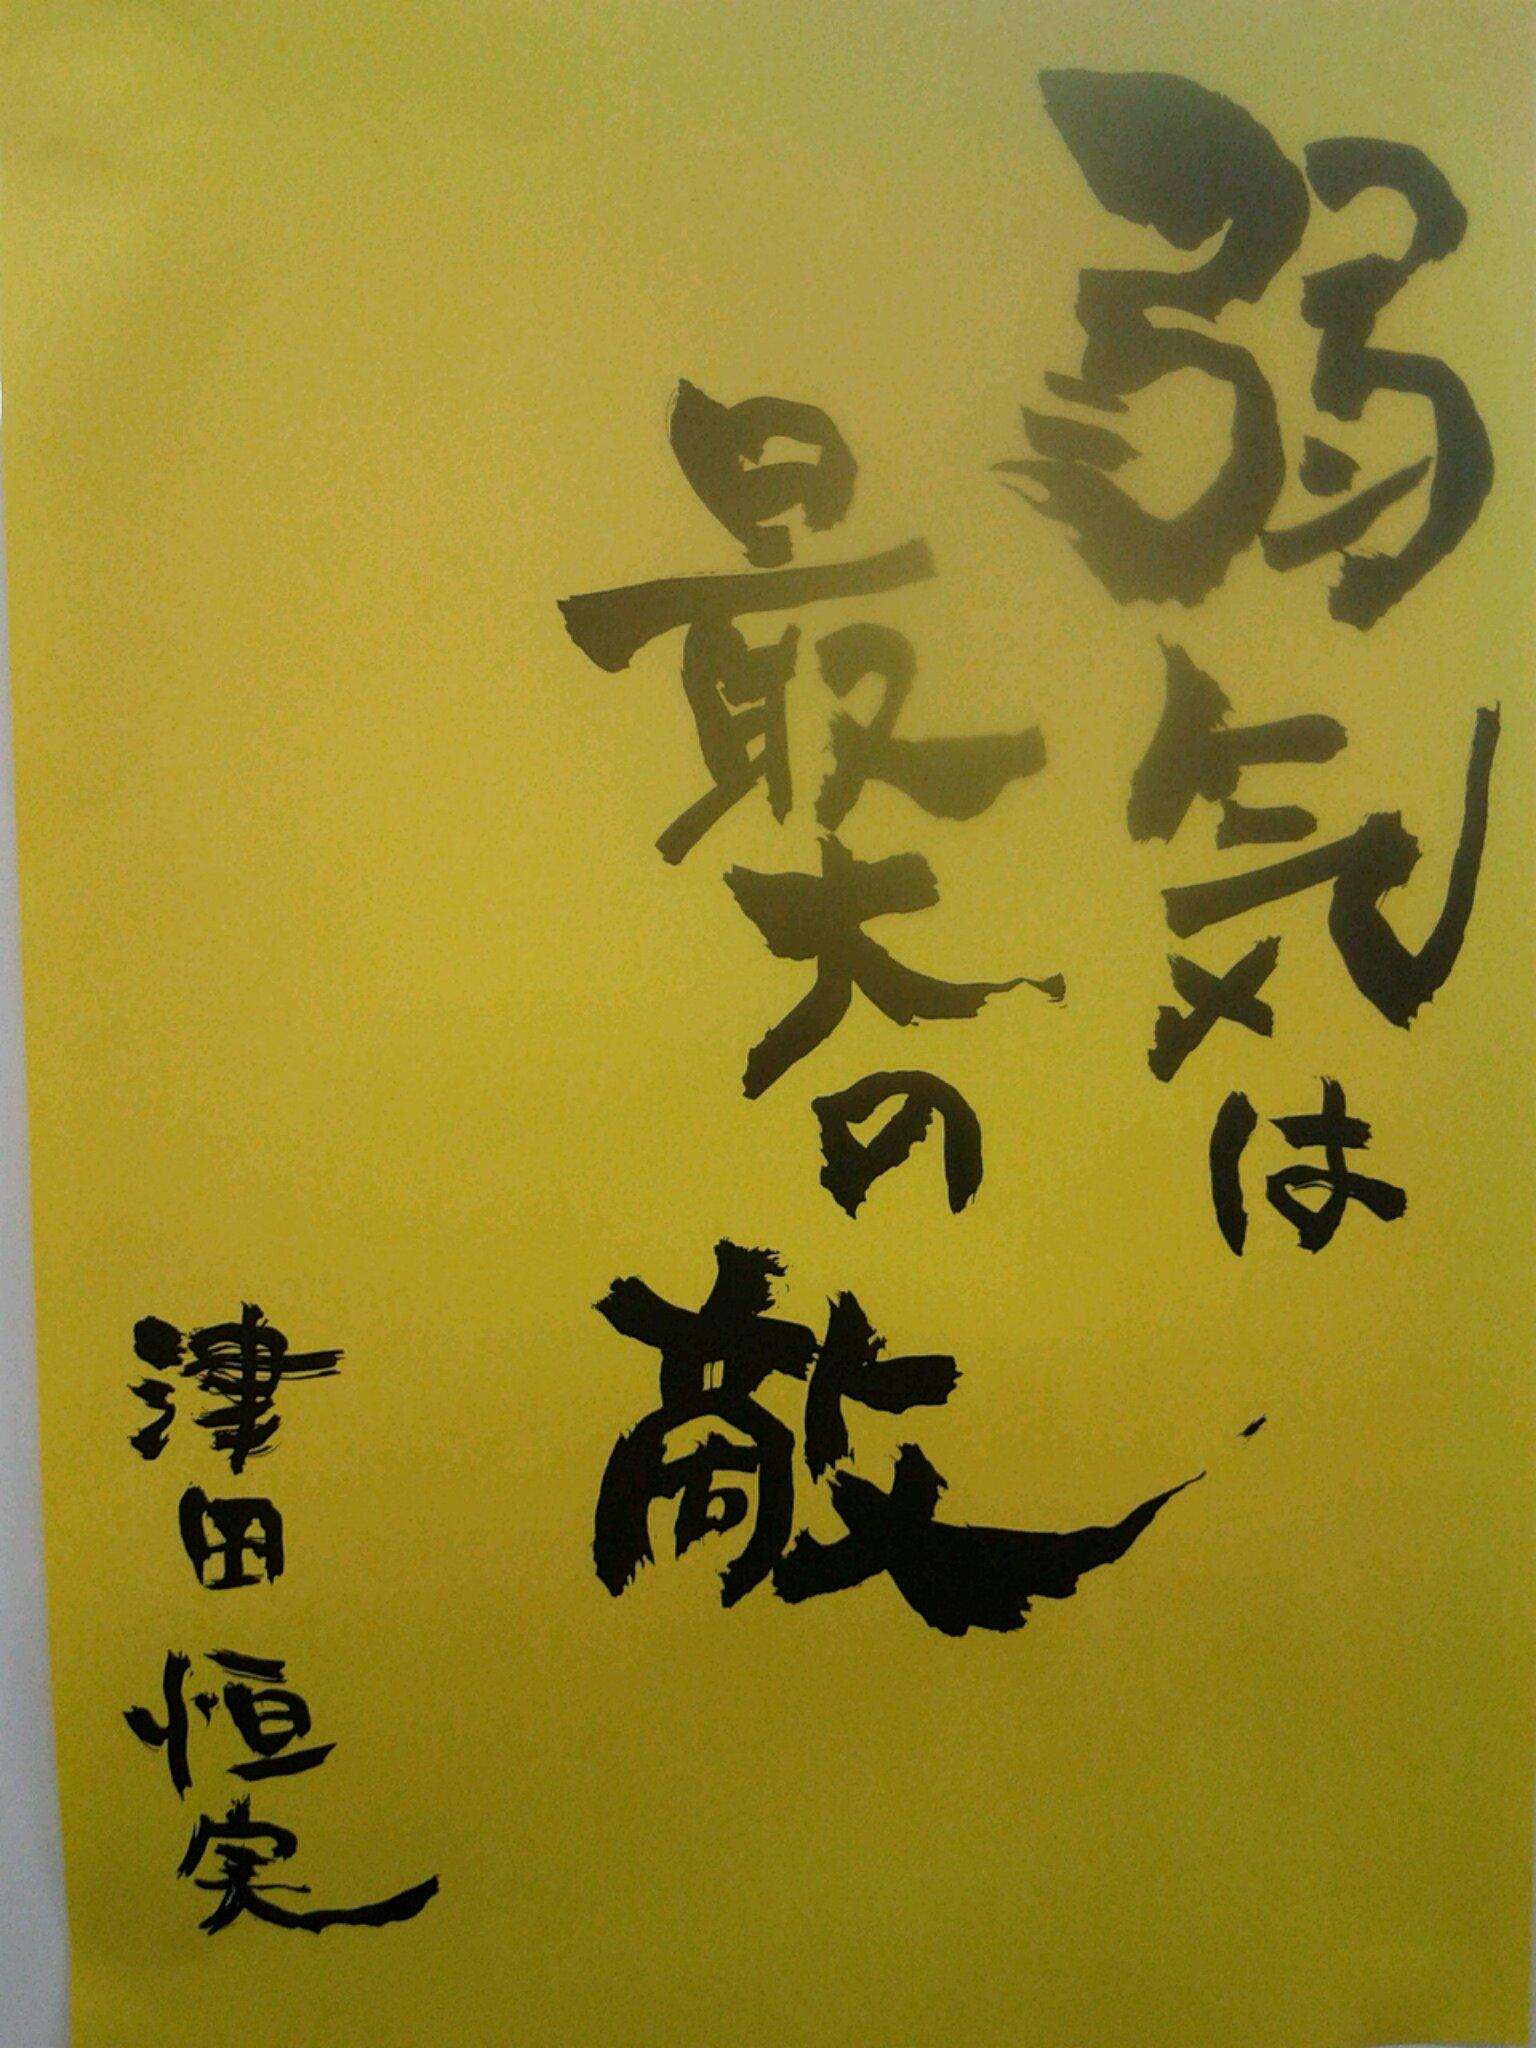 弱気は
最大の敵
津田恒実